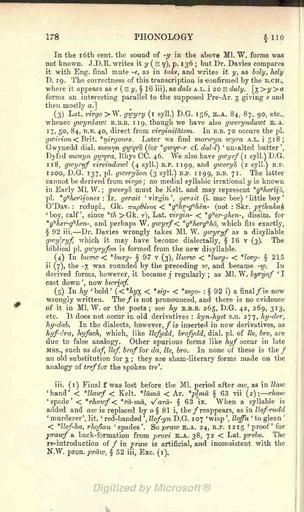 178 PHONOLOGY § 110
In the 16th cent. the sound of -y in the above Ml. W. forms was
not known. J.D.R. writes it y (≡ y), p. 136; but Dr. Davies compares
it with Eng. final mute -e, as in take, and writes it y, as boly, hely
D. 19. The correctness of this transcription is confirmed by the B.CH.,
where it appears as e (≡ y, § 16 iii), as dale A.L. i 20 ≡ daly.
forms an interesting parallel to the supposed Pre-Ar. ʒ giving ə and
then mostly a.]
(3) Lat. virgo > W. gwyry (1 syll.) D.G. 156, R.A. 84, 87, 90, etc.,
whence gwyrdawt R.B.B. 119, though we have also gweryndawt R.A.
17, 50, 84, B.B.B. 40, direct from virginitātem. In B.B. 70 occurs the pl.
Later we find morwyn wyra A.L. i 518;
Gwynedd dial. menyn gwyrð (for *gwyr-r cf. dal-l) 'unsalted butter',
Dyfed menyn gwyra, Ithys CC. 46. We also have gwyrf (1 syll.) D.G.
118, gwyryf eireindawt (4 syll.) R.P. 1199, and gweryð (2 syll.) R.P.
1200, D.G. 137, pl. gweryðon (3 syll.) R.P. 1149, B.B. 71. The latter
cannot be derived from virgo; no medial syllabic irrational y is known
in Early Ml. W.; gweryð must be Kelt. and may represent
O'Dav.: rodupl., Gk.
'boy, calf',
§ 92 iii.—Dr. Davies wrongly takes Ml. W. gwyryf as a disyllable
gwyryf, which it may have become dialectally, § 16 v (3). The
biblical pl. gwyryfon is formed from the new disyllable.
(4) In bwrw < *burg- § 97 v (3), llwrw < *lurg- < *lorg- § 215
ii (7), the -ʒ was rounded by the preceding w, and became -w. In
derived forms, however, it became j regularly; as Ml. W. byryaf 'I
cast down', now bwrjaf.
(5) In hy 'bold' a final f is now
wrongly written. The f is not pronounced, and there is no evidence
of it in Ml. W. or the poets; see hy R.B.B. 265, D.G. 42, 269, 313,
etc. It does not occur in old derivatives: hyn-hyet S.G. 277, hy-der,
hy-dab. In the dialects, however, f is inserted in new derivatives, as
hyf-dra, hyfach, which, like llyfach, brofydd, dial. pl. of lle, bro, are
due to false analogy. Other spurious forms like hyf occur in late
MSS., such as daf, llef, brof for da, lle, bro. In none of these is the f
an old substitution for ʒ; they are sham-literary forms made on the
analogy of tref for the spoken tre'.
iii. (1) Final f was lost before the Ml. period after aw, as in llaw
'hand' < *llawf < Kelt. *lāmā < Ar. § 63 vii (2):—rhaw
'spade' < *rhawf < § 63 ix. When a syllable is
added and aw is replaced by o § 81 i, the f reappears, as in llof-rudd
'murderer', lit. 'red-handed', llof-yn D.G. 107 'wisp', lloffa 'to glean'
< *llof-ha, rhofiau 'spades'. So praw R.A. 24, R.P. 1215 'proof' for
prawf a back-formation from provi R.A. 38, 72 < Lat. probo. The
re-introduction of f in praw is artificial, and inconsistent with the
N.W. pron. prāw, § 52 iii, Exc. (1).
Digitized by Microsoft ®